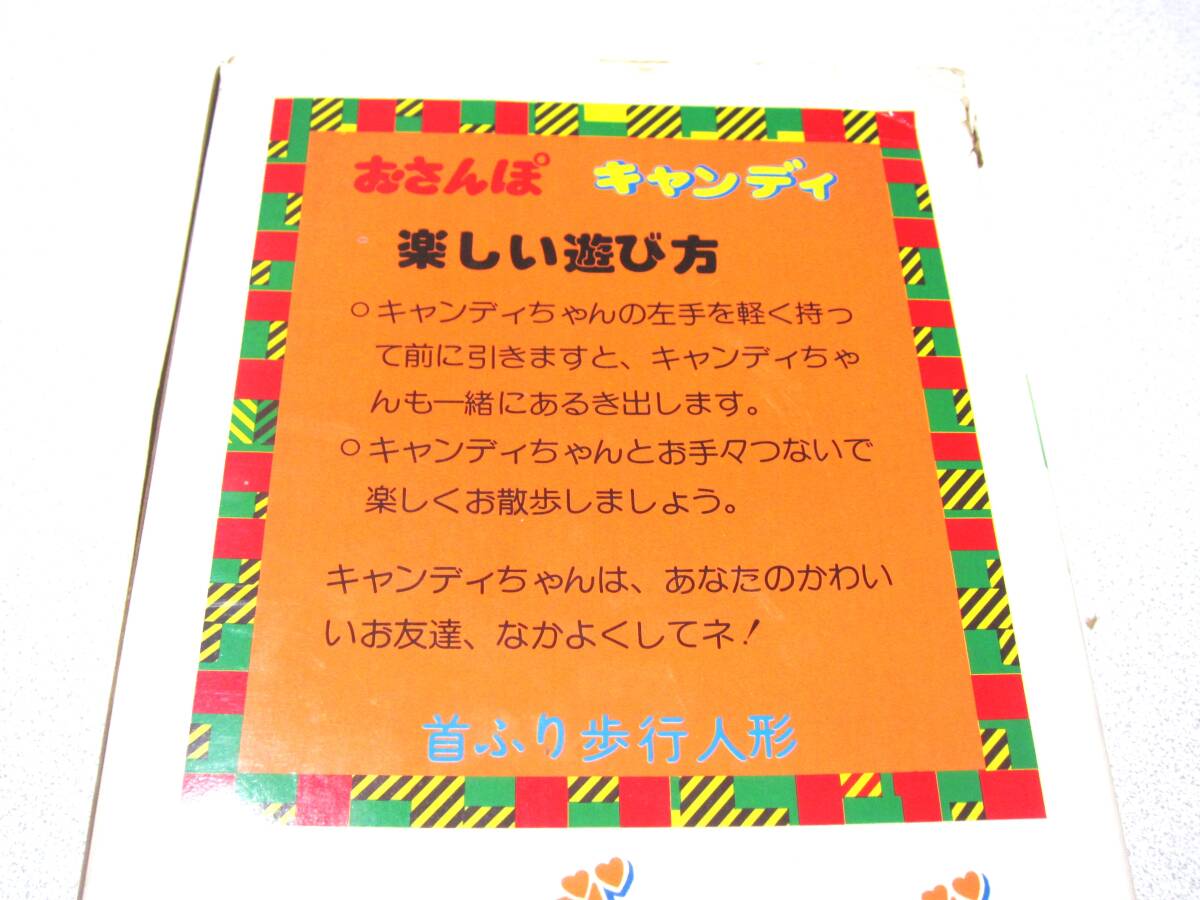 おさんぽ キャンディ
楽しい遊び方
○キャンディちゃんの左手を軽く持っ
て前に引きますと、キャンディちゃ
んも一緒にあるき出します。
○キャンディちゃんとお手々つないで
楽しくお散歩しましょう。
キャンディちゃんは、あなたのかわい
いお友達、なかよくしてネ!
首ふり歩行人形